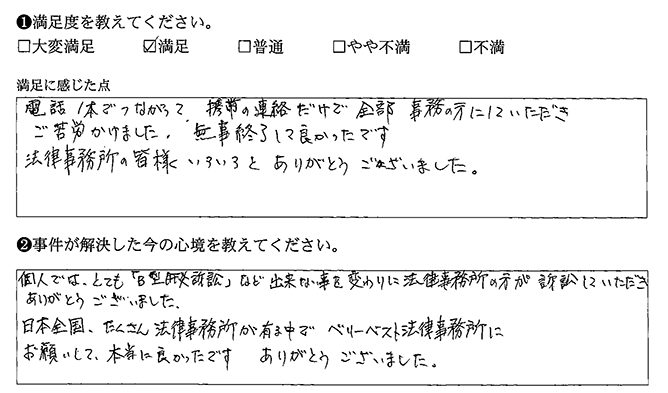 ❶満足度を教えてください。
□大変満足 ☑満足 □普通 □やや不満 □不満
満足に感じた点
電話1本でつながって 携帯の連絡だけで 全部 事務の方にしていただき
ご苦労かけました。 無事終了して良かったです
法律事務所の皆様 いろいろと ありがとう ございました。
❷事件が解決した今の心境を教えてください。
個人では、とても「B型肝炎訴訟」など出来ない事を変わりに法律事務所の方が 訴訟していただき
ありがとう ございました。
日本全国、たくさん法律事務所が有る中で ベリーベスト法律事務所に
お願いして、本当に良かったです ありがとう ございました。